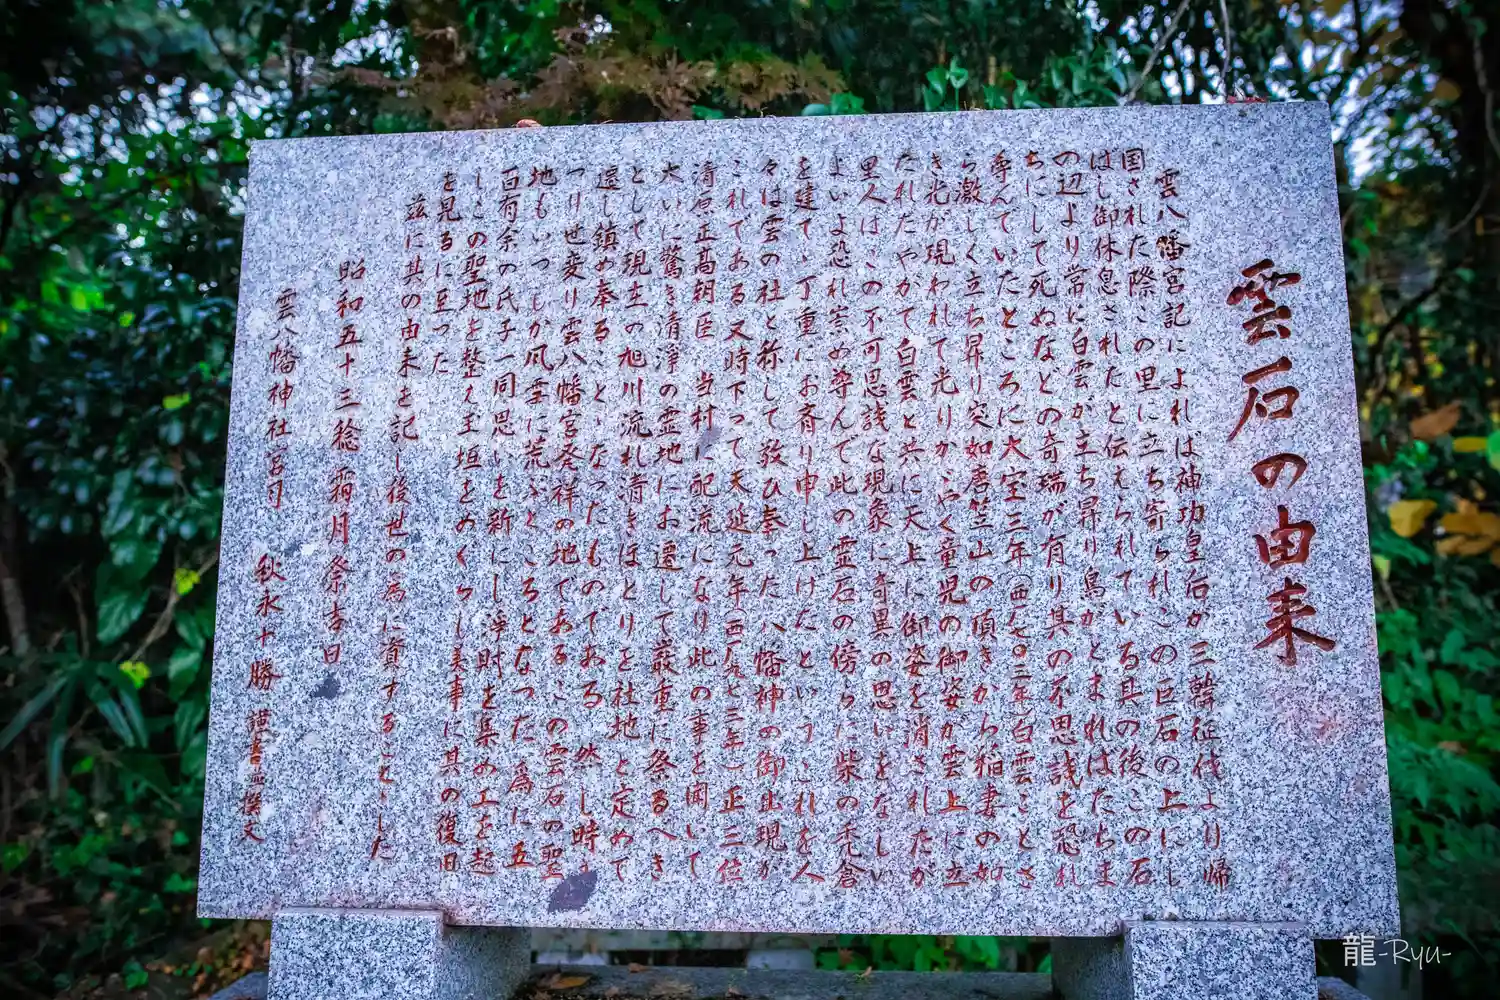 雲石の由来
雲八幡宮記によれば神功皇后が三韓征伐より帰
国された際この里に立ち寄られこの巨石の上にし
ばし御休息されたと伝えられている其の後この石
の辺より常に白雲が立ち昇り鳥がとまればたちま
ちにして死ぬなどの奇瑞が有り其の不思議を恐れ
尊んでいたところに大宝三年(西七〇三年)白雲ことさ
ら激しく立ち昇り突如唐笠山の頂きから稲妻の如
き光が現われて光りかゞやく童児の御姿が雲上に立
たれたやがて白雲と共に天上に御姿を消されたが
里人はこの不可思議な現象に奇異の思いをなしい
よいよ恐れ崇め尊んで此の霊石の傍らに柴の禿倉
を建て、丁重にお斉り申し上げたといつこれを人
々は雲の社と称して敬ひ奉った八幡神の御出現が
これである又時下つて天延元年(西九七三年)正三位
清原正高朝臣 当村に配流になり此の事を聞いて
大いに驚き清浄の霊地にお遷して厳重に祭るべき
として現在の旭川流れ清きほとりを社地と定めて
遷し鎮め奉ること、なったものである 然し時
つり世変り雲八幡宮発祥の地であるこの雲石の聖
地もいつしか風雪に荒ぶところとなつた為に五
百有余の氏子一同思いを新にし浄財を集め工を起
しこの聖地を整え玉垣をめぐらし美事に其の復旧
を見るに至つた
茲に其の由来を記し後世の為に資することゝした
昭和五十三稔 霜月祭吉日
雲八幡神社宮司 秋永十勝 謹書並撰文
龍-Ryu-